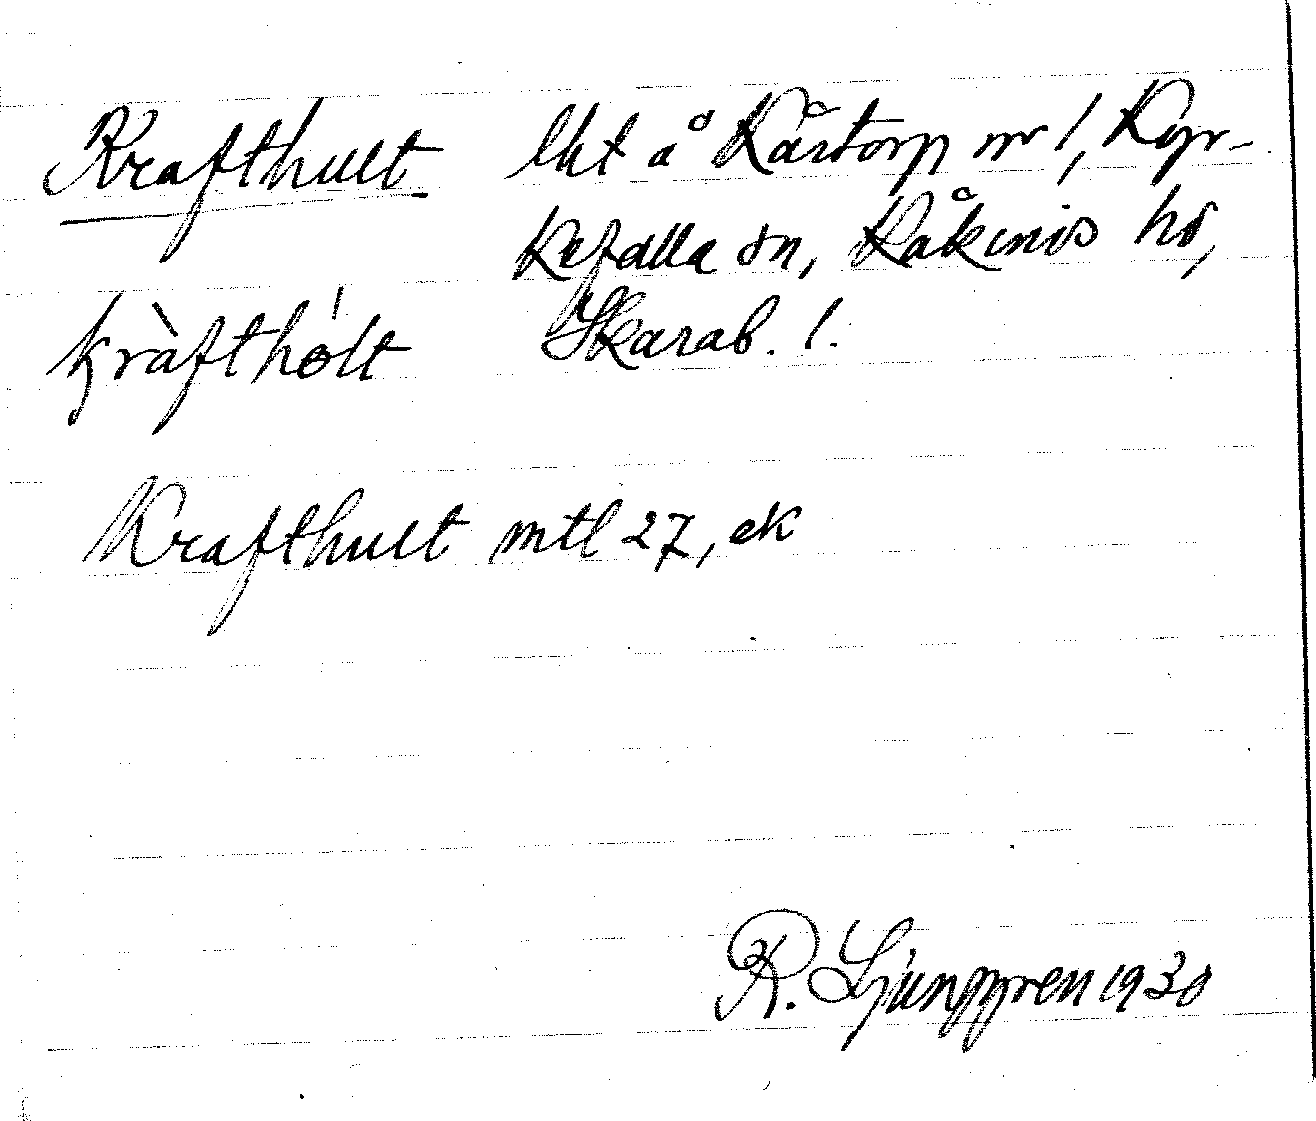 Krafthult lht å Kårtorp nr 1, Kyr-
kefalla sn, Kåkinds hd,
kràfthólt Skarab. l.
Krafthult mtl 27, ek
R. Ljunggren 1930